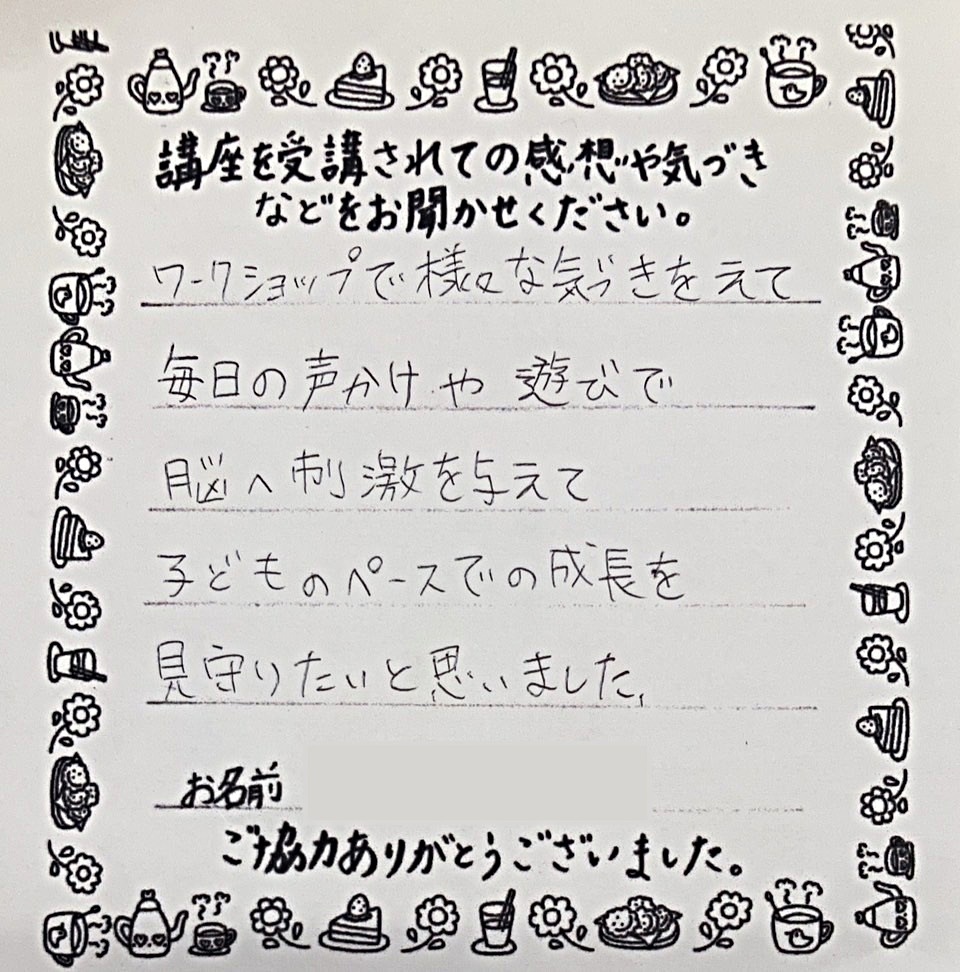 講座を受講されての感想や気づき
などをお聞かせください。
ワークショップで様々な気づきをえて
毎日の声かけや遊びで
脳へ刺激を与えて
子どものペースでの成長を
見守りたいと思いました。
お名前
ご協力ありがとうございました。